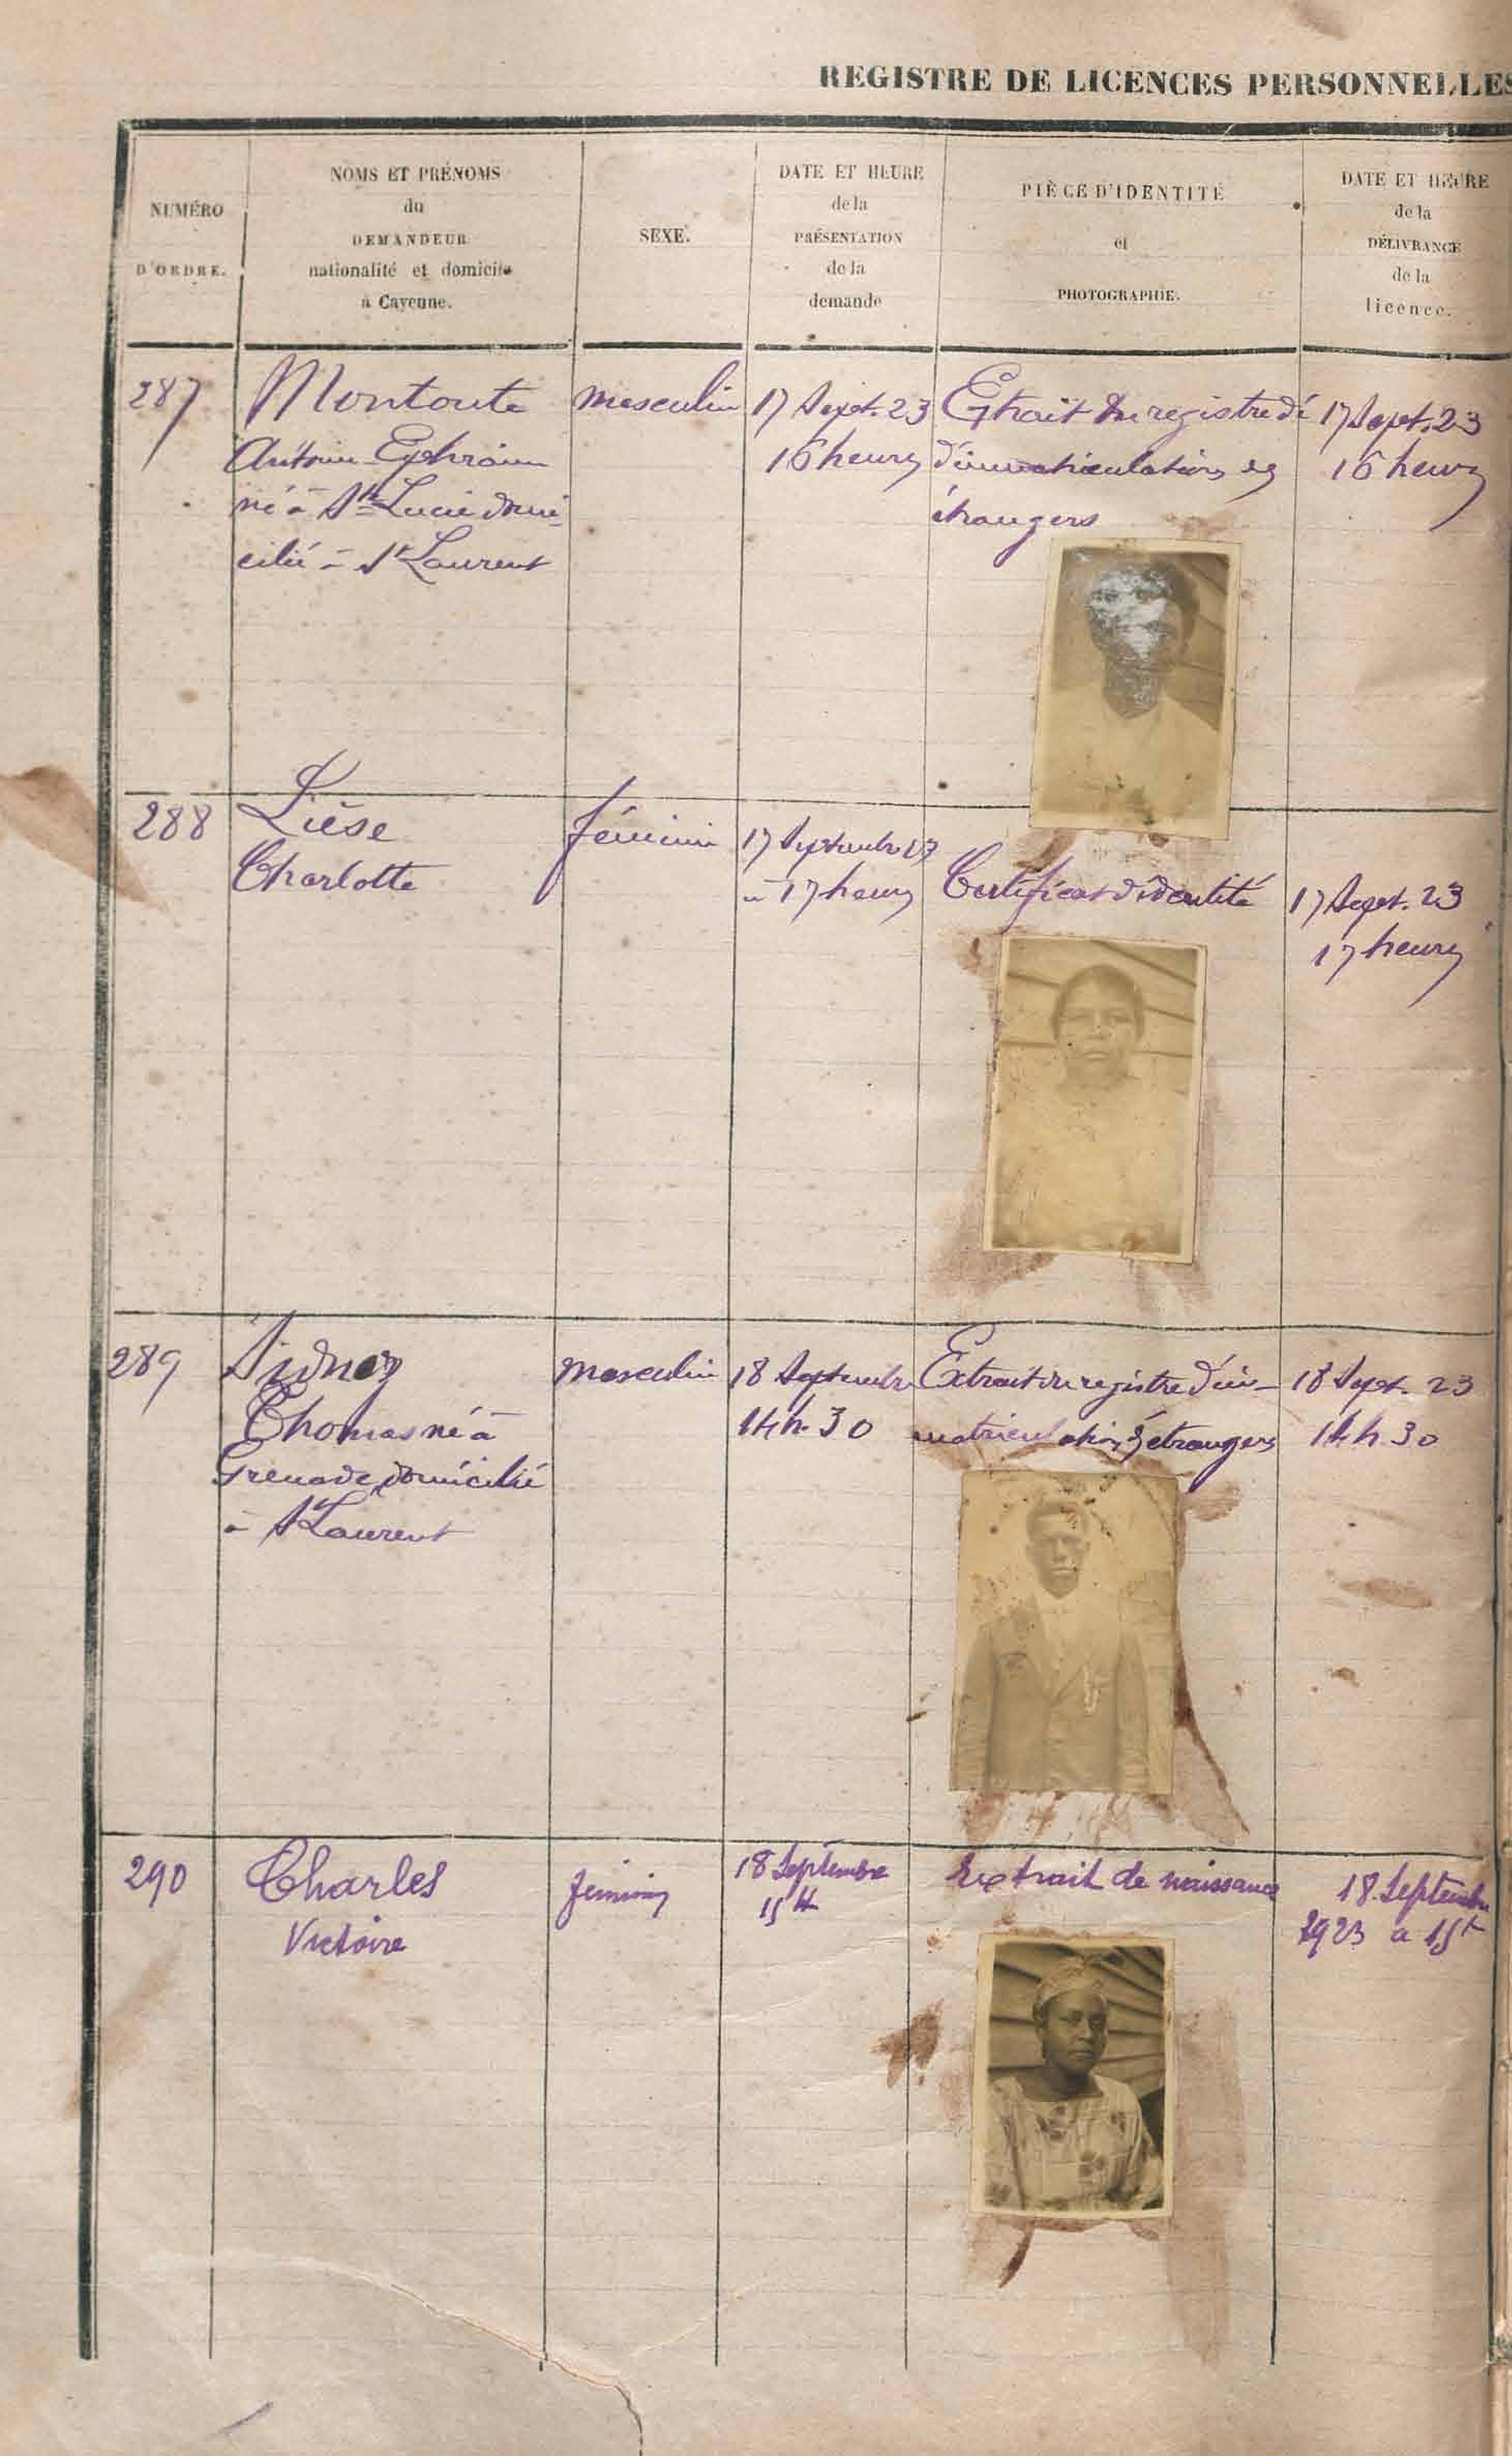 REGISTRE DE LICENCES PERSONNELLES
NUMÉRO
D'ORDRE.
NOMS ET PRÉNOMS
du
DEMANDEUR
nationalité et domicile
à Cayenne.
SEXE.
DATE ET HEURE
de la
PRÉSENTATION
de la
demande
PIÈCE D'IDENTITÉ
et
PHOTOGRAPHIE.
DATE ET HEURE
de la
DÉLIVRANCE
de la
licence.
287
Montoute
Antoine Ephraim
né à Ste Lucie domi-
cilié à St Laurent
masculin
17 Sept. 23
16 heures
Extrait du registre d
d'immatriculation des
étrangers
17 Sept. 23
16 heures
288
Lièse
Charlotte
féminin
17 Septembre 23
à 17 heures
Certificat d'identité
17 Sept. 23
17 heures
289
Sidney
Thomas né à
Grenade domicilié
à St Laurent
masculin
18 Septembre
14 h. 30
Extrait du registre d'im-
matriculation étrangers
18 Sept. 23
14 h 30
290
Charles
Victoire
feminin
18 Septembre
15 H
Extrait de naissance
18 Septembre
1923 a 15h